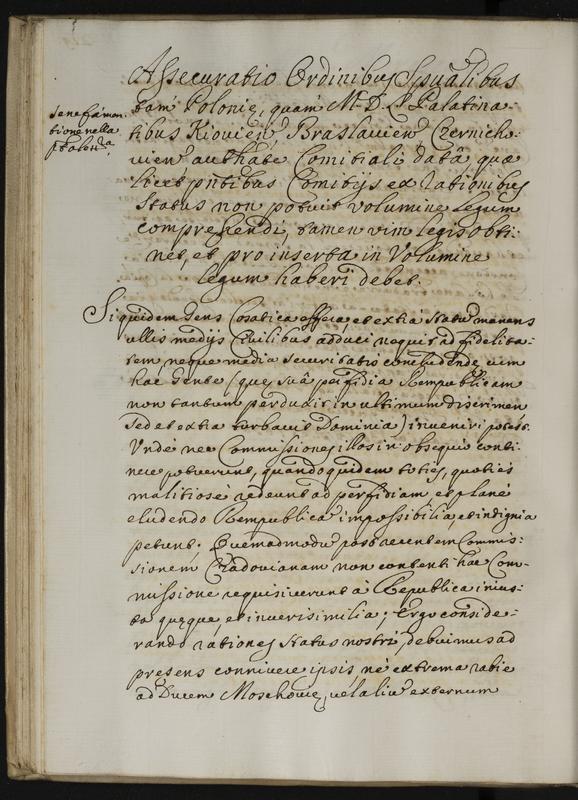 Assecuratio Ordinibus Spualibus
tam Polonię, quam M. D. L. Palatina
tibus Kiovien Braslavien Czernicho-
vien authãte Comitiali datâ quæ
licet pñtibus Comitijs ex rationibus
Status non potuit volumine Legum
comprehendi, tamen vim legis obti-
net, et pro inserta in Volumine
legum haberi debet.
Siquidem Gens Cosatica effera, et extra Statũ manens
ullis medijs Civilibus adduci nequit ad fidelita-
tem, neque media securitatis concludendę cum
hac Gente (quę suâ perfidia Rempublicam
non tantum perduxit in ultimum discrimen
sed et extia turbavit Dominia) inveniri potest.
Unde nec Commissiones illos in obsequio conti-
nere potuerunt, quandoquidem toties, quoties
malitiosè redeunt ad perfidiam et planè
eludendo Rempublicã impossibilia et indignia
petunt. Quemadmodũ post recentem Commis-
sionem Czadovianam non contenti hac Com-
missione requisiverunt à Republica inius-
ta quęque, et inverisimilia; Ergo conside-
rando rationes Status nostri, debuimus ad
presens connivere ipsis, nè extrema rabie
ad Ducem Moschovię, vel aliũ externum